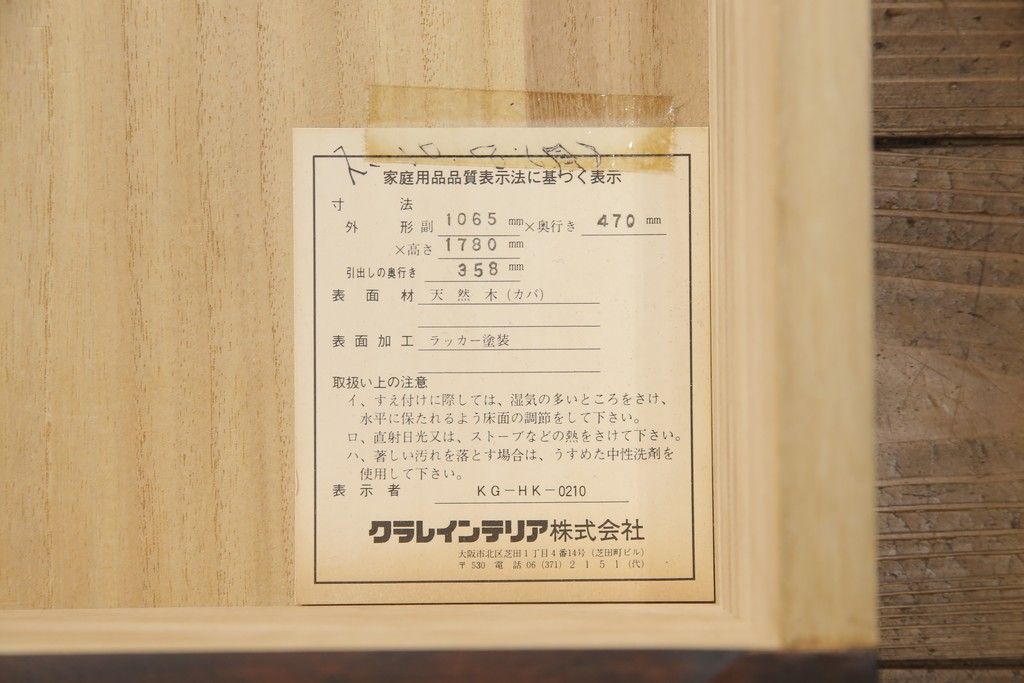 家庭用品品質表示法に基づく表示
寸法
外形 副 1065 mm ×奥行き 470 mm
×高さ 1780 mm
引出しの奥行き 358 mm
表面材 天然木(カバ)
表面加工 ラッカー塗装
取扱い上の注意
イ、すえ付けに際しては、湿気の多いところをさけ、
水平に保たれるよう床面の調節をして下さい。
ロ、直射日光又は、ストーブなどの熱をさけて下さい。
ハ、著しい汚れを落とす場合は、うすめた中性洗剤を
使用して下さい。
表示者 KG-HK-0210
クラレインテリア株式会社
大阪市北区芝田1丁目4番14号(芝田町ビル)
〒530 電話 06(371)2151(代)